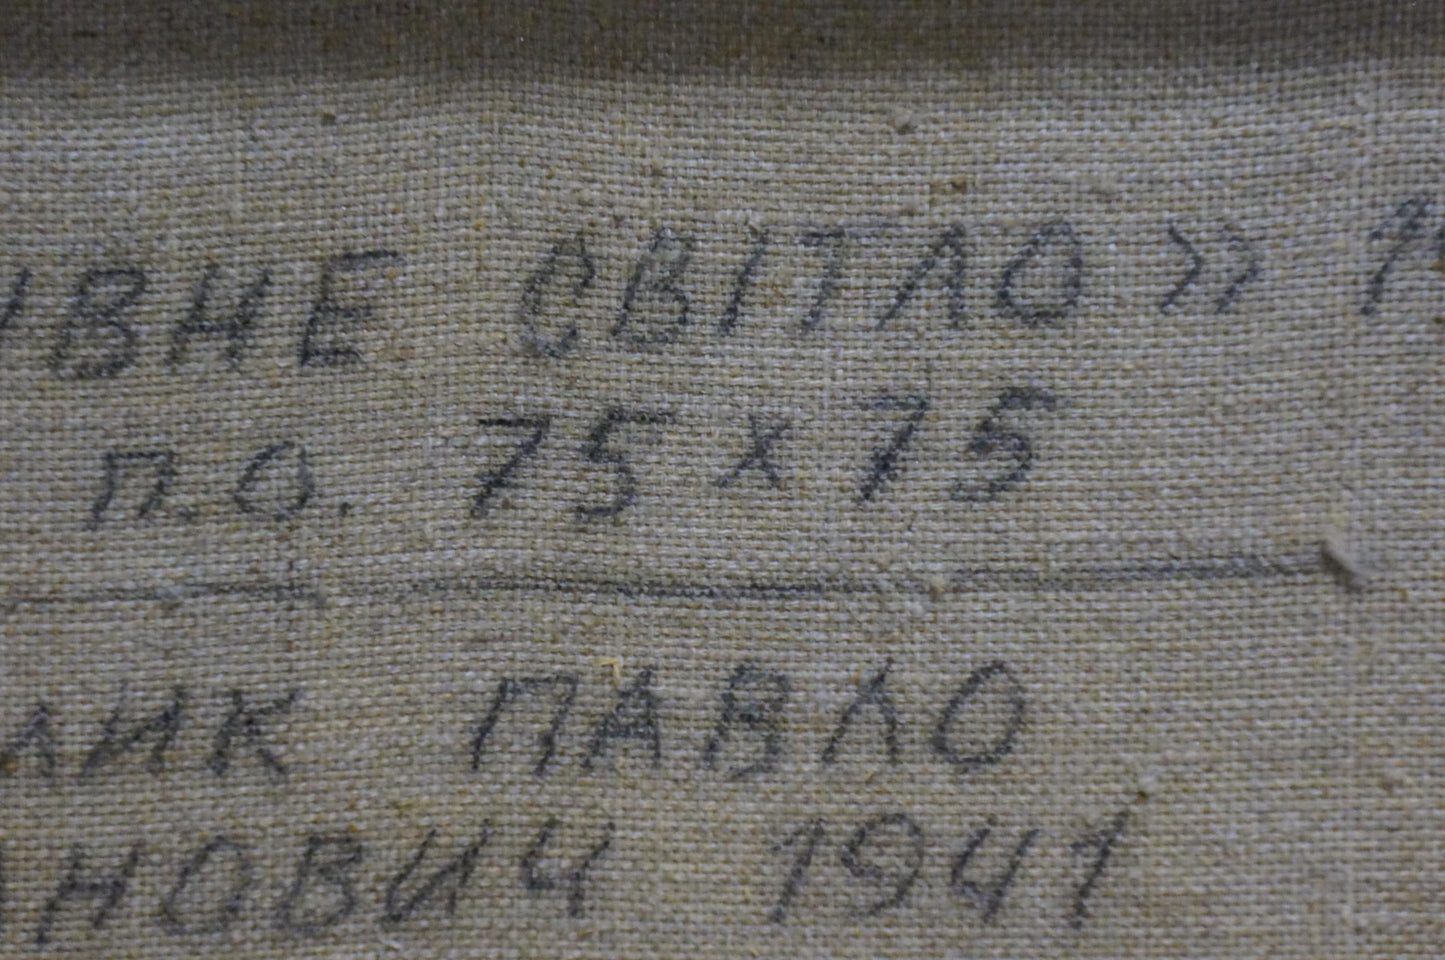 ИВНЕ СВІТЛО» 1
п.о. 75 x 75
ЛИК ПАВЛО
НОВИЧ 1941